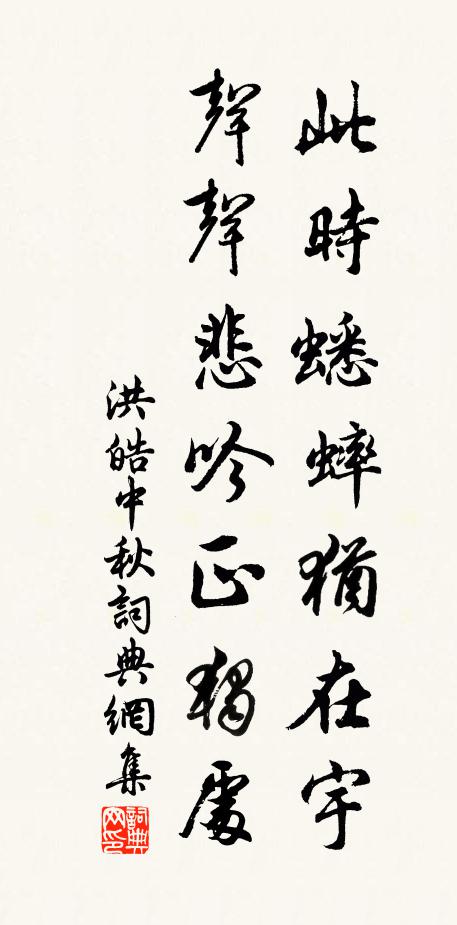 此時蟋蟀猶在宇
聲聲悲吟正獨處
洪皓中秋詞典網集
詞典
网印